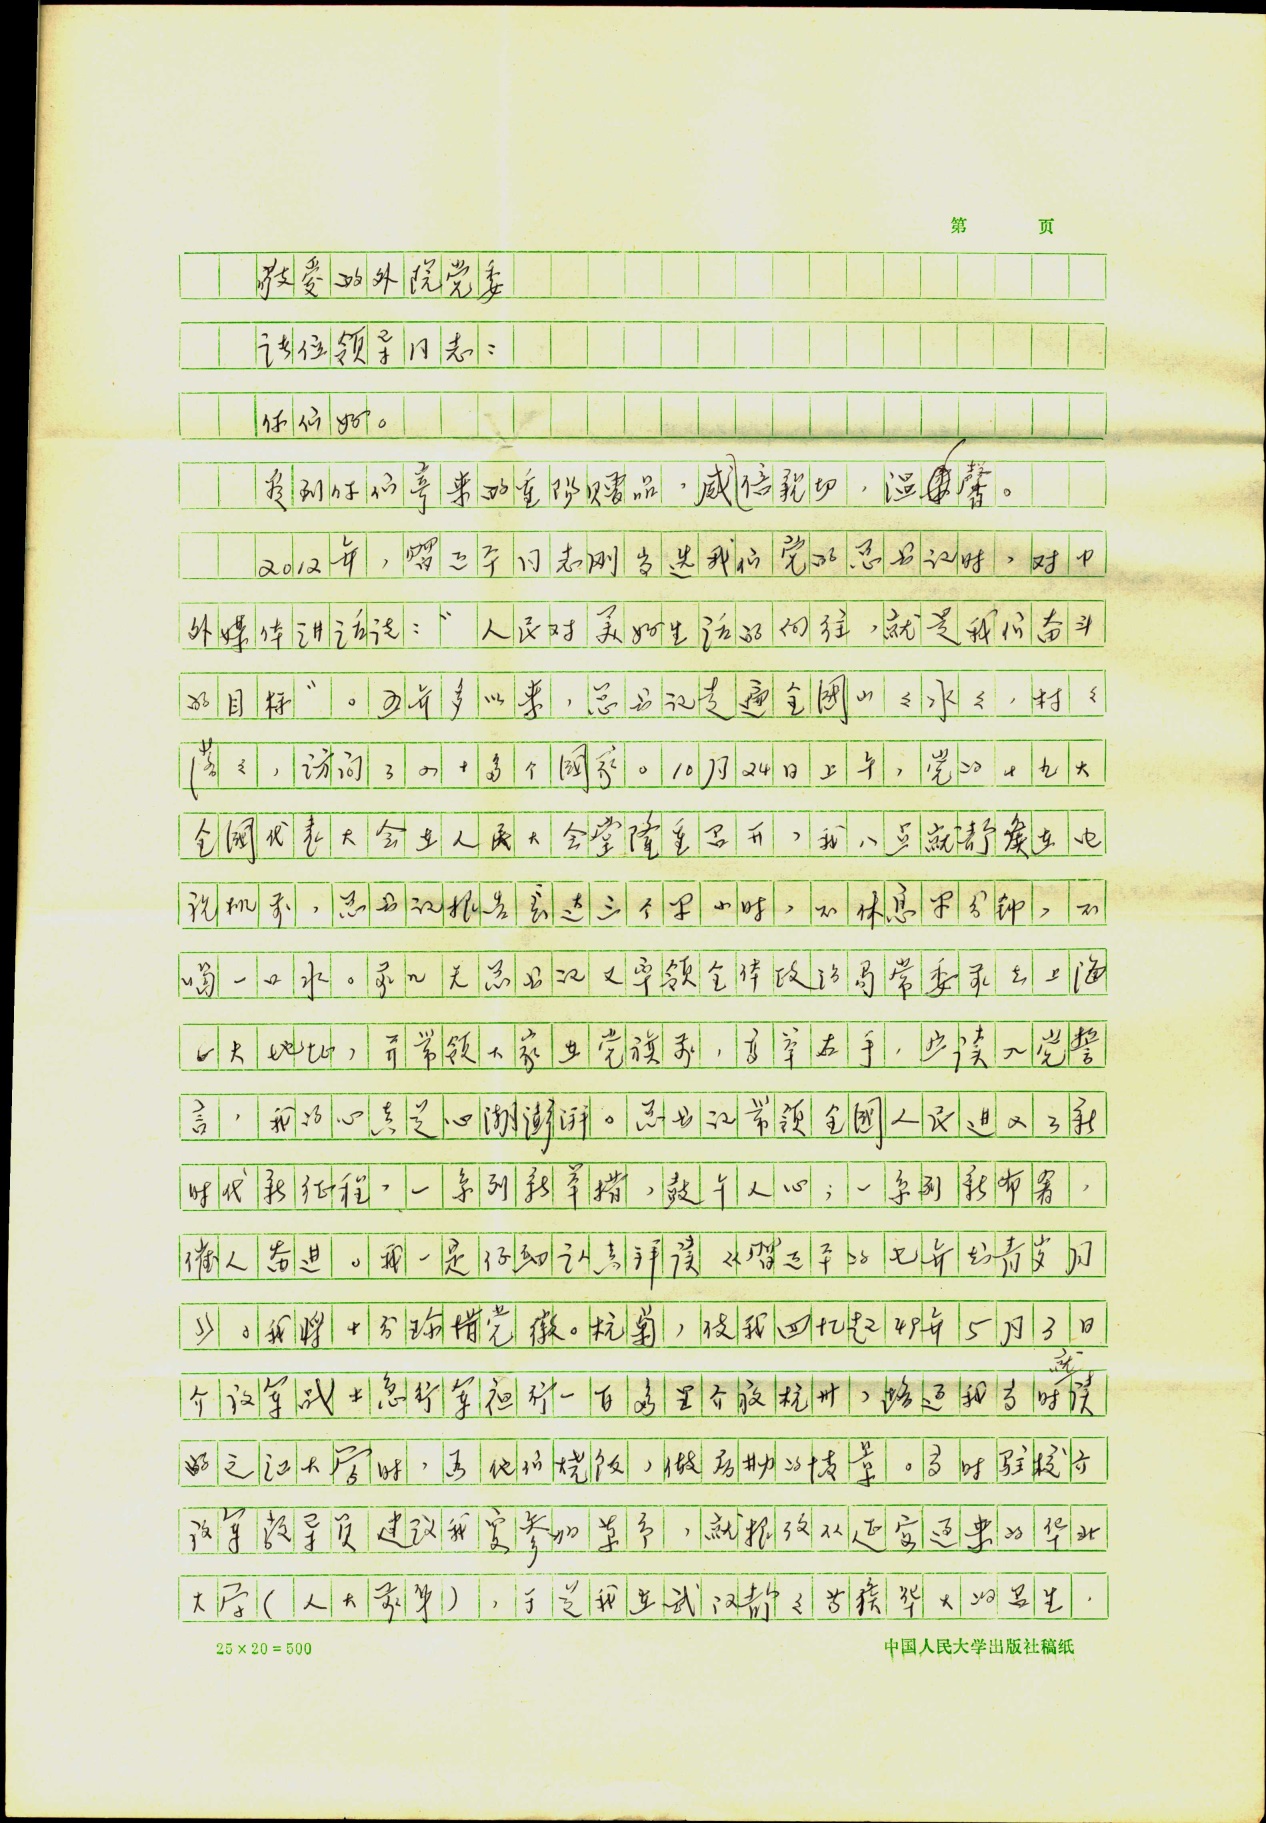 第 页
敬爱的外院党委
诸位领导同志：
你们好。
看到你们寄来的重阳赠品，感倍亲切，温馨。
2012年，習近平同志刚当选我们党的总书记时，对中
外媒体讲话说：“人民对美好生活的向往，就是我们奋斗
的目标”。五年多以来，总书记走遍全國山山水水，村村
落落，访问了五十多个國家。10月24日上午，党的十九大
全國代表大会在人民大会堂隆重召开，我八点就静候在电
视机前，总书记报告长达三个半小时，不休息半分钟，不
喝一口水。前几天总书记又率领全体政治局常委前去上海
一大地址，并带领大家在党旗前，高举右手，宣读入党誓
言，我的心真是心潮澎湃。总书记带领全國人民进入了新
时代新征程，一系列新举措，鼓午人心；一系列新布署，
催人奋进。我一定仔细认真拜读《習近平的七年知青岁月
》。我将十分珍惜党徽。杭菊，使我回忆起49年5月3日
介放军战士急行军夜行一百多里介放杭州，路过我当时就读
的之江大学时，为他们烧饭，做后勤的情景。当时驻校介
放军教导员建议我要参加革命，就报效从延安过来的华北
大学(人大前身)，于是我在武汉静静等候华大的召生，
25×20=500 中国人民大学出版社稿纸